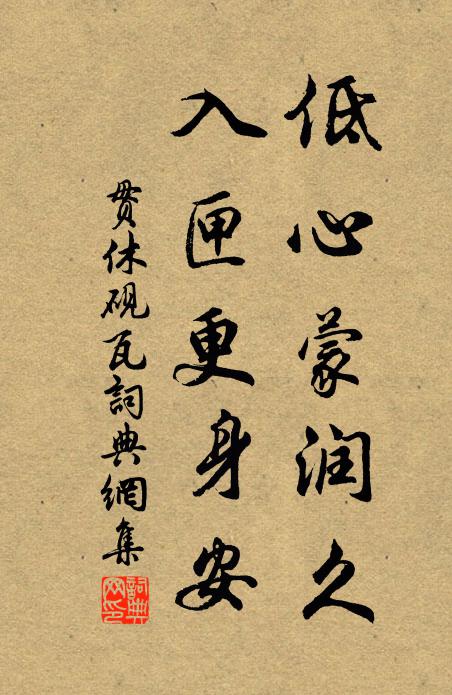 低心蒙润久
入匣更身安
贯休砚瓦詞典網集
詞典
网印